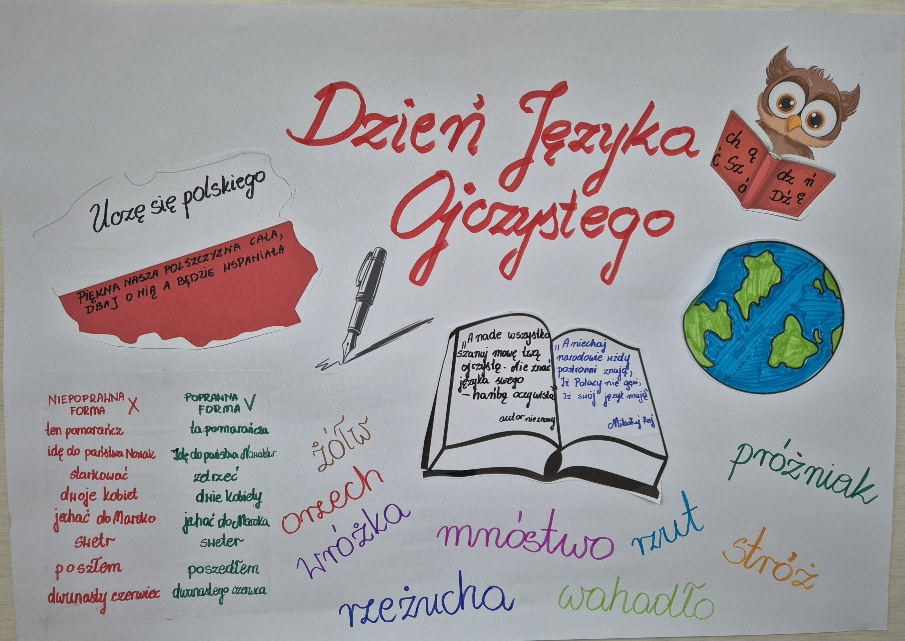 Dzień Języka
Ojczystego
ch ą
ć Sz
ó
dz ń
Dź Ę
Uczę się polskiego
PIĘKNA NASZA POLSZCZYZNA CAŁA,
DBAJ O NIĄ A BĘDZIE WSPANIAŁA
„A nade wszystko
szanuj mowę twą
ojczystą. Nie znać
języka swego
– hańbą oczywistą"
autor nieznany
„A niechaj
narodowie wżdy
postronni znają,
Iż Polacy nie gęsi,
Iż swój język mają"
Mikołaj Rej
NIEPOPRAWNA
FORMA X
POPRAWNA
FORMA V
ten pomarańcz
ta pomarańcza
idę do państwa Nowak
Idę do państwa Nowaków
starkować
zetrzeć
dwoje kobiet
dwie kobiety
jechać do Maroko
jechać do Maroka
swetr
sweter
poszłem
poszedłem
dwunasty czerwiec
dwunastego czerwca
żółw
orzech
wróżka
mnóstwo
rzut
próżniak
stróż
rzeżucha
wahadło